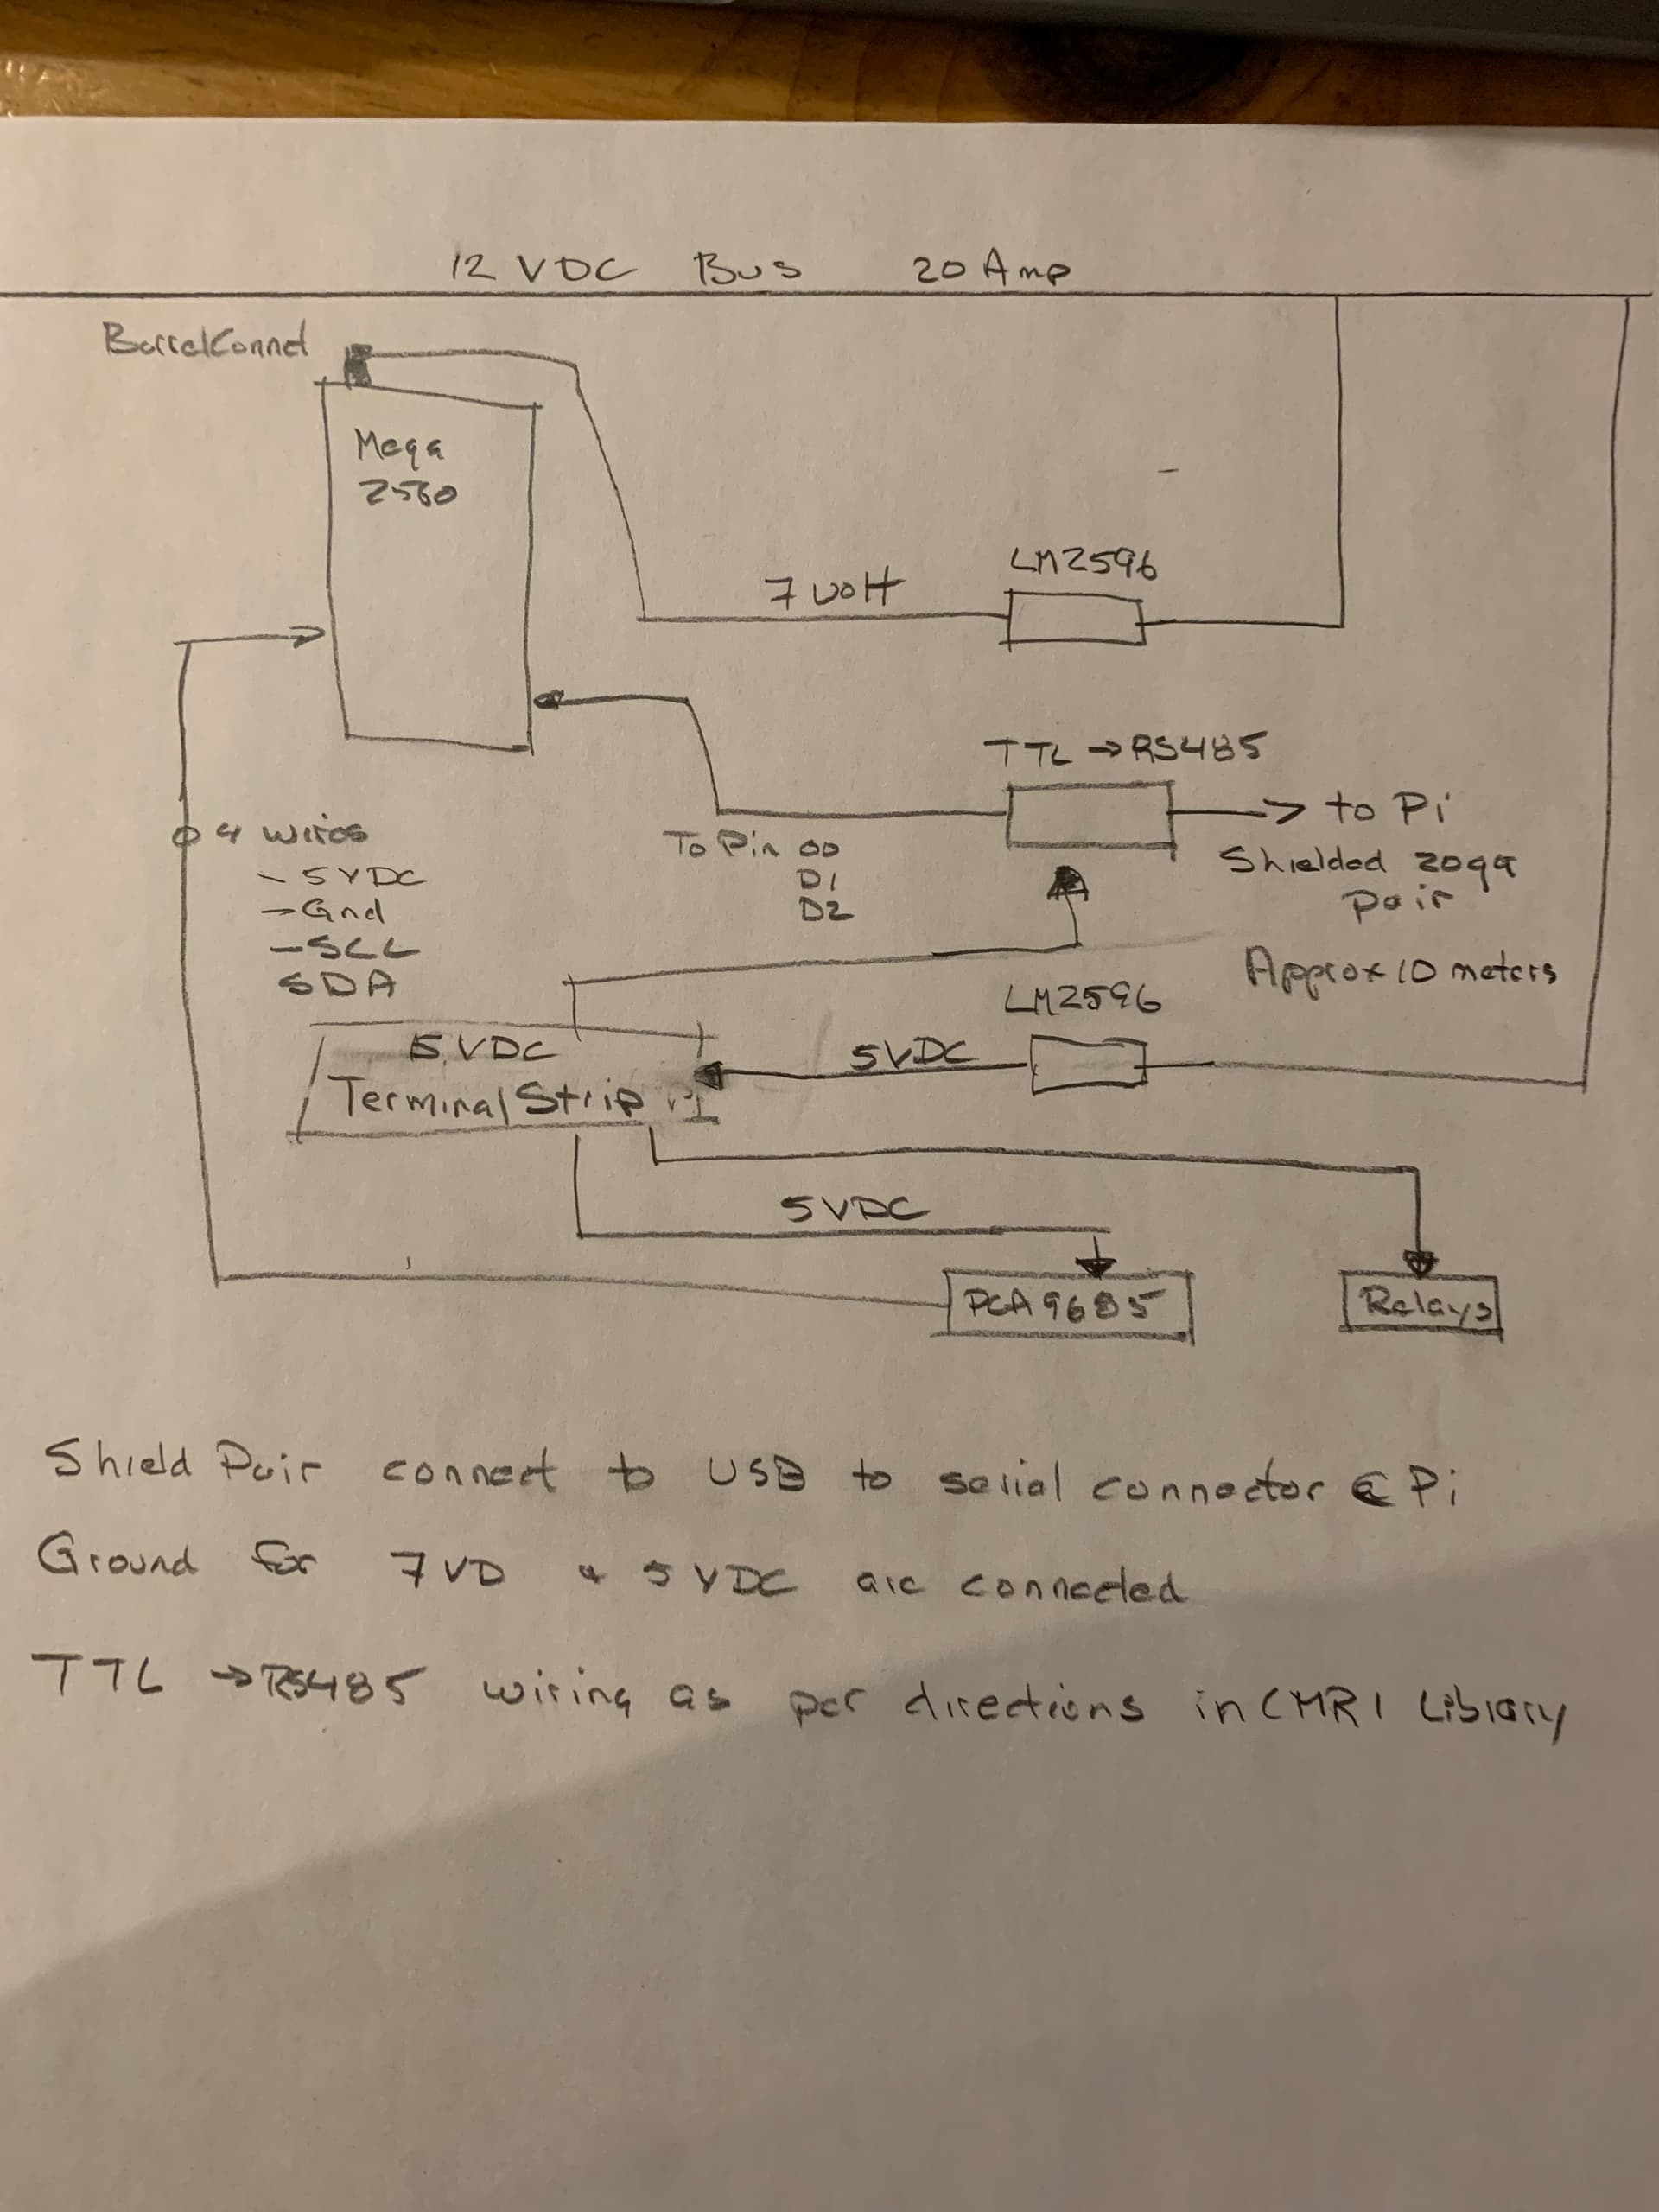 12 VDC Bus 20 Amp
BarrelConnet
Mega
2560
LM2596
7 volt
TTL → RS485
→ to Pi
To Pin 00
D1
D2
Shielded 20ga
pair
4 wires
- 5VDC
- Gnd
- SCL
SDA
Approx 10 meters
LM2596
5VDC
5VDC
Terminal Strip
5VDC
PCA9685
Relays
Shield Pair connect to USB to serial connector @ Pi
Ground for 7VD & 5VDC are connected
TTL → RS485 wiring as per directions in CMRI Library